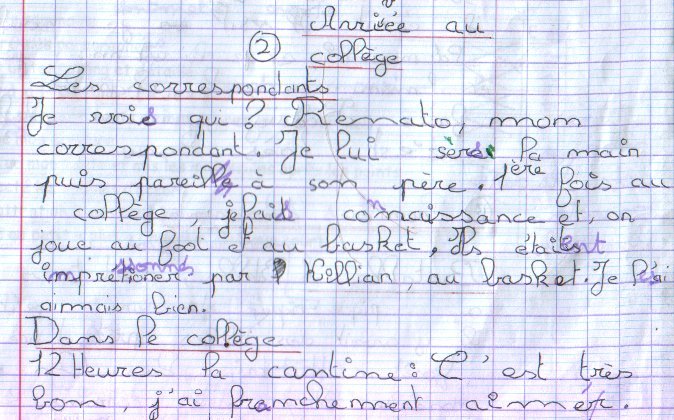 Arrivée au
② collège
Les correspondants
Je vois qui ? Renato, mom
correspondant. Je lui sère la main
puis pareil à son père. 1ère fois au
collège, je fais connaissance et, on
joue au foot et au basket, Ils étaient
impressionnés par Killian, au basket. Je l'ai
aimais bien.
Dans le collège
12 Heures la cantine : C'est très
bon, j'ai franchement aimér.